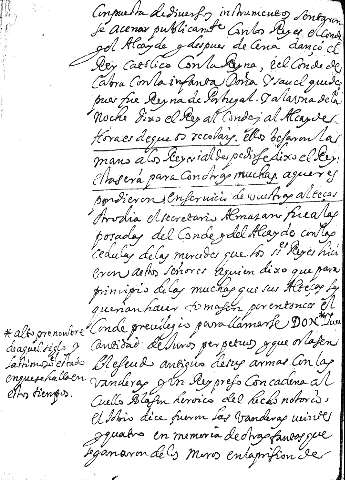 Compuesta de diversos instrumentos sentaron
se acenar publicamte Con los Reyes el Conde
y el Alcayde y despues de Cena dançó el
Rey Catolico Con la Reyna, y el Conde de
Cabra Con la infanta Doña Ysauel que des
pues fue Reyna de Portugal. Y a la una de la
Noche dixo el Rey al Conde y al Alcayde
Hora es de que os recojais. Ellos besaron las
mano a los Reyes i al despedirse dixo el Rey
esta será para Con otras muchas, aque res
pondieron en servicio de vuestras altezas
Otro dia el secretario Almazan fue a las
posadas del Conde y del Alcayde con las
cedulas de las mercedes que los Sres Reyes hici
eron a estos señores aquien dixo que para
principio de las muchas que sus Altezas les
querian hacer tomasen por entonces el
Conde previlegio para llamarse DON *
cantidad de Juros perpetuos y que orlasen
el escudo antiguo de sus armas Con las
vanderas y Un Rey preso Con cadena al
Cuello Blason heroico del hecho notorio.
el dice fueron las vanderas veinte
y quatro en memoria de otras tantas que
se ganaron de los Moros en la prision de
* alto renombre
de aquel siglo y
la estado
en que se halla en
estos tiempos.